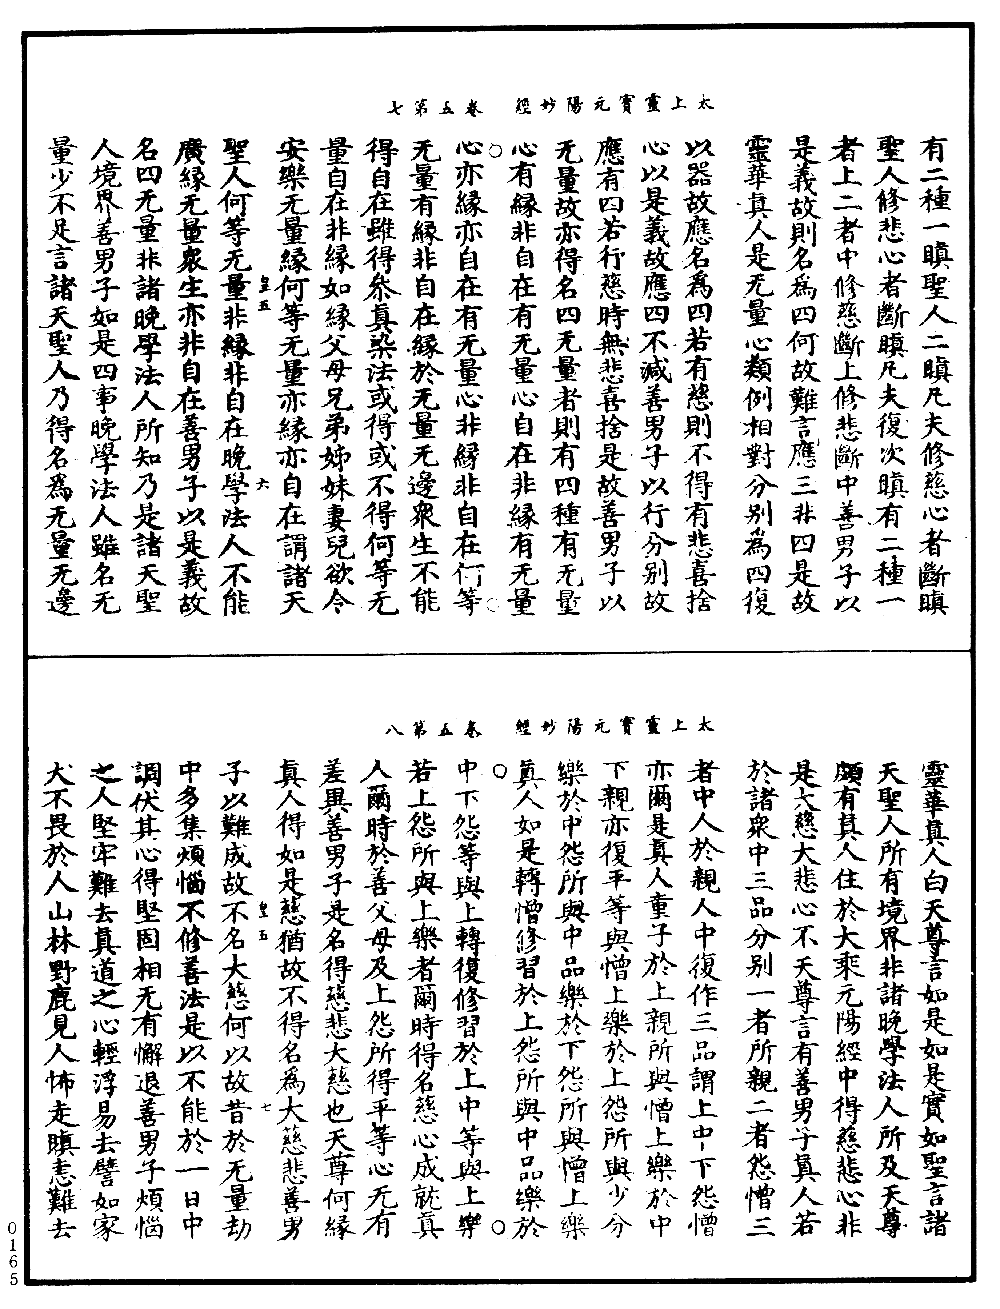 太上靈寶元陽妙經　卷五第七
有二種一瞋聖人二瞋凡夫修慈心者斷瞋
聖人修悲心者斷瞋凡夫復次瞋有二種一
者上二者中修慈斷上修悲斷中善男子以
是義故則名為四何故難言應三非四是故
靈華真人是无量心類例相對分別為四復
以器故應名為四若有慈則不得有悲喜捨
心以是義故應四不減善男子以行分別故
應有四若行慈時無悲喜捨是故善男子以
无量故亦得名四无量者則有四種有无量
心有緣非自在有无量心自在非緣有无量
心亦緣亦自在有无量心非緣非自在何等
无量有緣非自在緣於无量无邊衆生不能
得自在雖得叅真染法或得或不得何等无
量自在非緣如緣父母兄弟姊妹妻兒欲令
安樂无量緣何等无量亦緣亦自在謂諸天
皇五　六
聖人何等无量非緣非自在晚學法人不能
廣緣无量衆生亦非自在善男子以是義故
名四无量非諸晚學法人所知乃是諸天聖
人境界善男子如是四事晚學法人雖名无
量少不足言諸天聖人乃得名為无量无邊
太上靈寶元陽妙經　卷五第八
靈華真人白天尊言如是如是實如聖言諸
天聖人所有境界非諸晚學法人所及天尊
頗有真人住於大乘元陽經中得慈悲心非
是大慈大悲心不天尊言有善男子真人若
於諸衆中三品分別一者所親二者怨憎三
者中人於親人中復作三品謂上中下怨憎
亦爾是真人童子於上親所與憎上樂於中
下親亦復平等與憎上樂於上怨所與少分
樂於中怨所與中品樂於下怨所與憎上樂
真人如是轉憎修習於上怨所與中品樂於
中下怨等與上轉復修習於上中等與上樂
若上怨所與上樂者爾時得名慈心成就真
人爾時於善父母及上怨所得平等心无有
差異善男子是名得慈悲大慈也天尊何緣
真人得如是慈猶故不得名為大慈悲善男
皇五　七
子以難成故不名大慈何以故昔於无量劫
中多集煩惱不修善法是以不能於一日中
調伏其心得堅固相无有懈退善男子煩惱
之人堅牢難去真道之心輕浮易去譬如家
犬不畏於人山林野鹿見人怖走瞋恚難去
0165